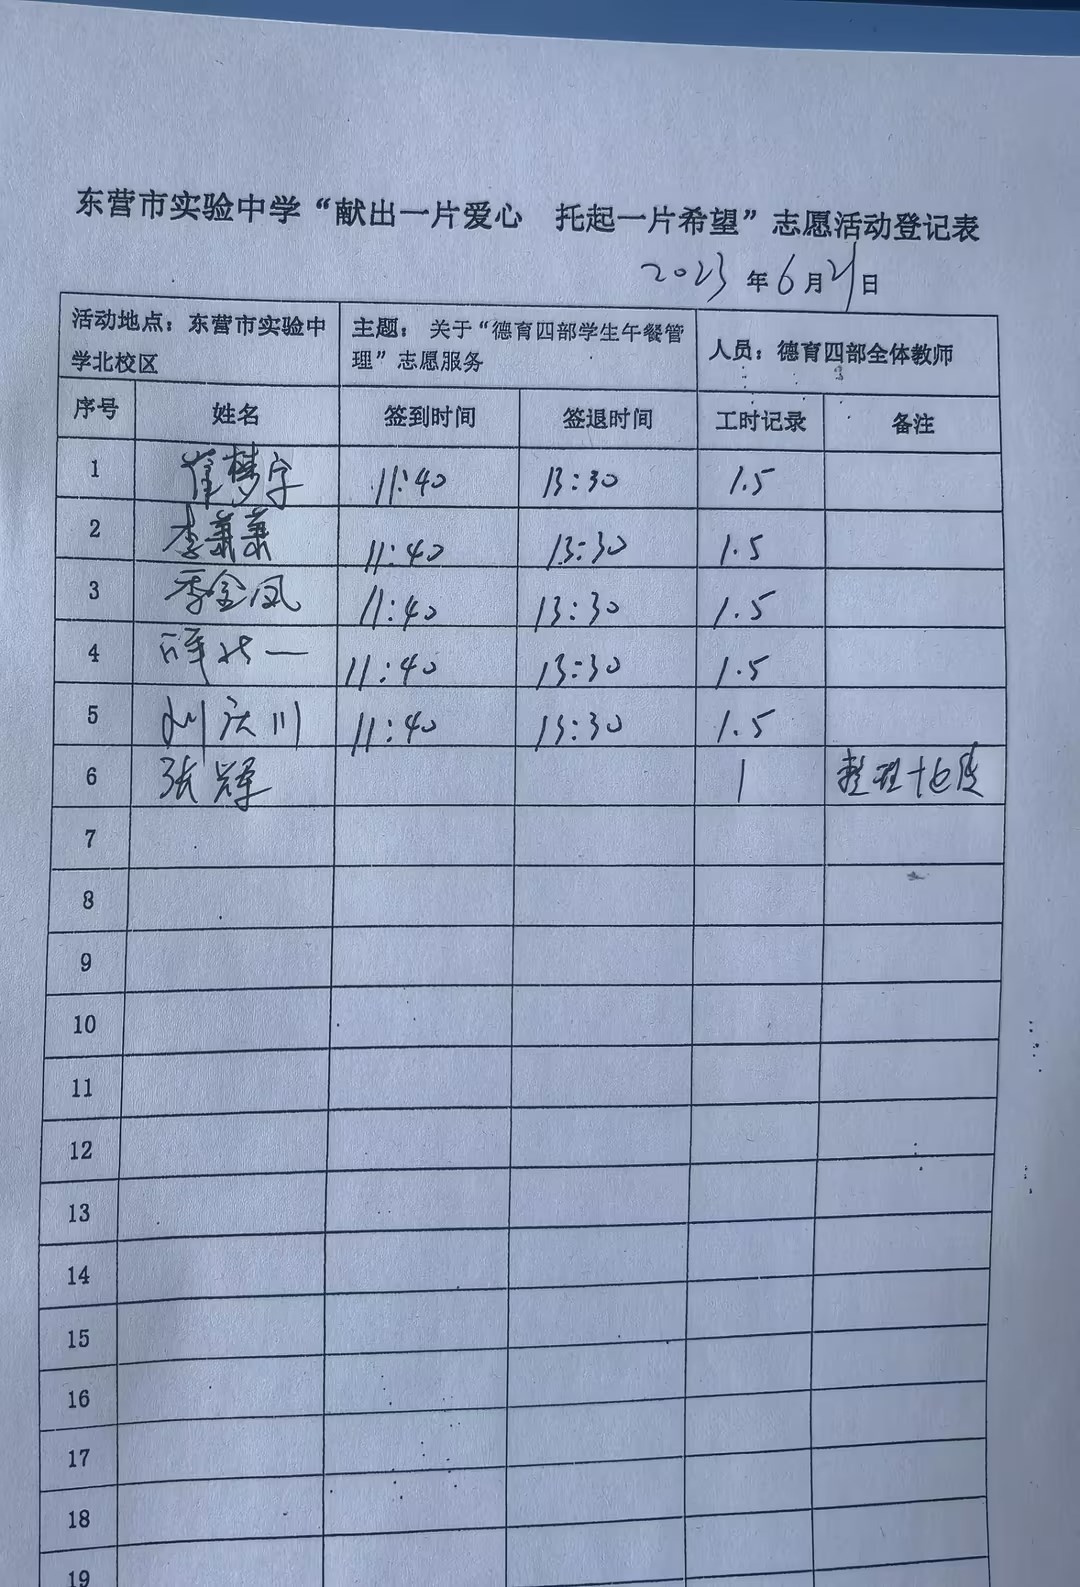 东营市实验中学“献出一片爱心 托起一片希望”志愿活动登记表
2023年6月21日
活动地点：东营市实验中学北校区 主题：关于“德育四部学生午餐管理”志愿服务 人员：德育四部全体教师
序号 姓名 签到时间 签退时间 工时记录 备注
1 崔梦宇 11:40 13:30 1.5
2 李萧萧 11:40 13:30 1.5
3 季金凤 11:40 13:30 1.5
4 薛 一 11:40 13:30 1.5
5 刘庆川 11:40 13:30 1.5
6 张辉 1 整理十地段
7
8
9
10
11
12
13
14
15
16
17
18
19